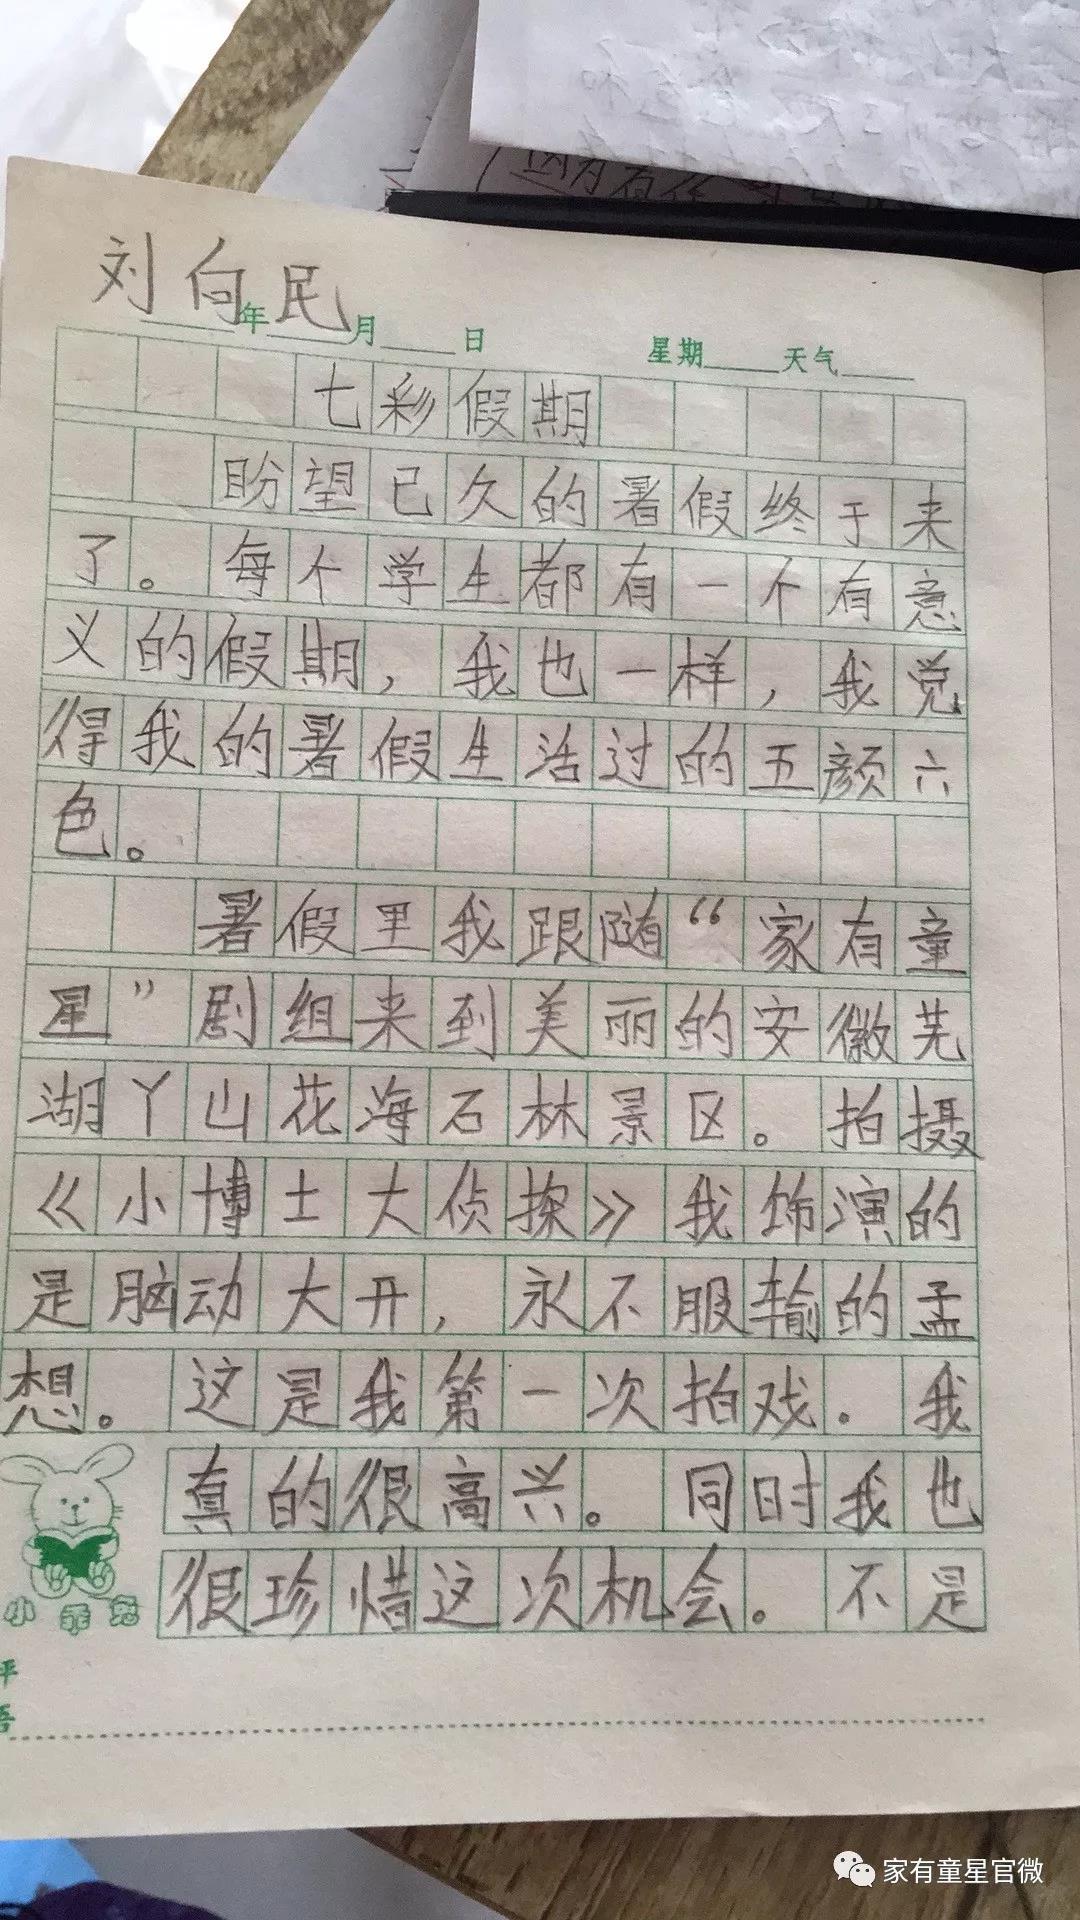 刘向民
年 月 日 星期 天气
七彩假期
盼望已久的暑假终于来
了。每个学生都有一个有意
义的假期，我也一样，我觉
得我的暑假生活过的五颜六
色。
暑假里我跟随“家有童
星”剧组来到美丽的安徽芜
湖丫山花海石林景区。拍摄
《小博士大侦探》我饰演的
是脑动大开，永不服输的孟
想。这是我第一次拍戏．我
真的很高兴。同时我也
很珍惜这次机会。不是
小乖兔
评
语
家有童星官微